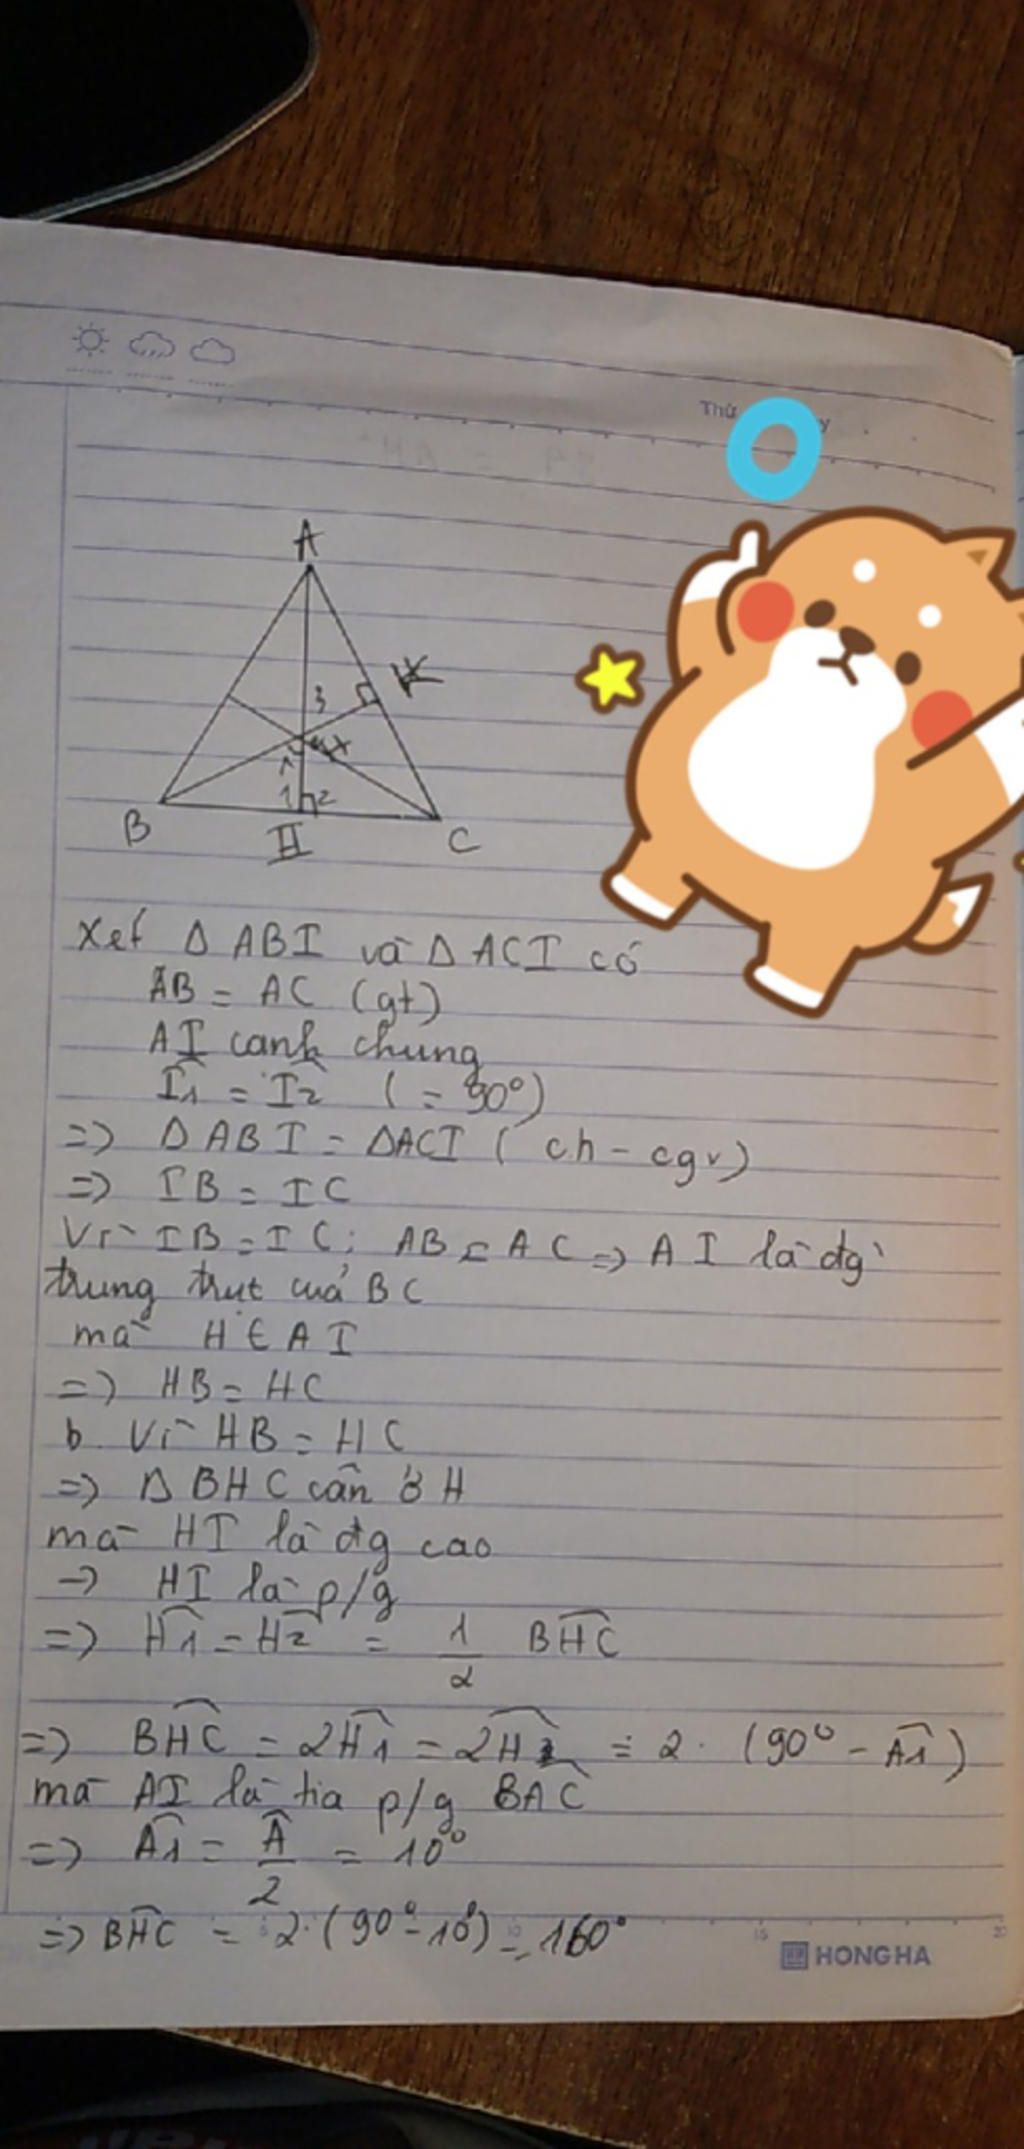 Thứ
y
A
K
3
1
1 2
B
I
C
Xét Δ ABI và Δ ACI có
AB = AC (gt)
AI cạnh chung
I1 = I2 ( = 90°)
=> Δ ABI = ΔACI ( ch - cgv)
=> IB = IC
Vì IB = IC; AB = AC => AI là đg
trung trực của BC
mà H ∈ AI
=> HB = HC
b. Vì HB = HC
=> Δ BHC cân ở H
mà HI là đg cao
-> HI là p/g
=> H1 = H2 = 1/2 BHC
=> BHC = 2H1 = 2H2 = 2. (90° - A1)
mà AI là tia p/g BAC
=> A1 = A/2 = 10°
=> BHC = 2.(90° - 10°) = 160°
15 20
HONG HA